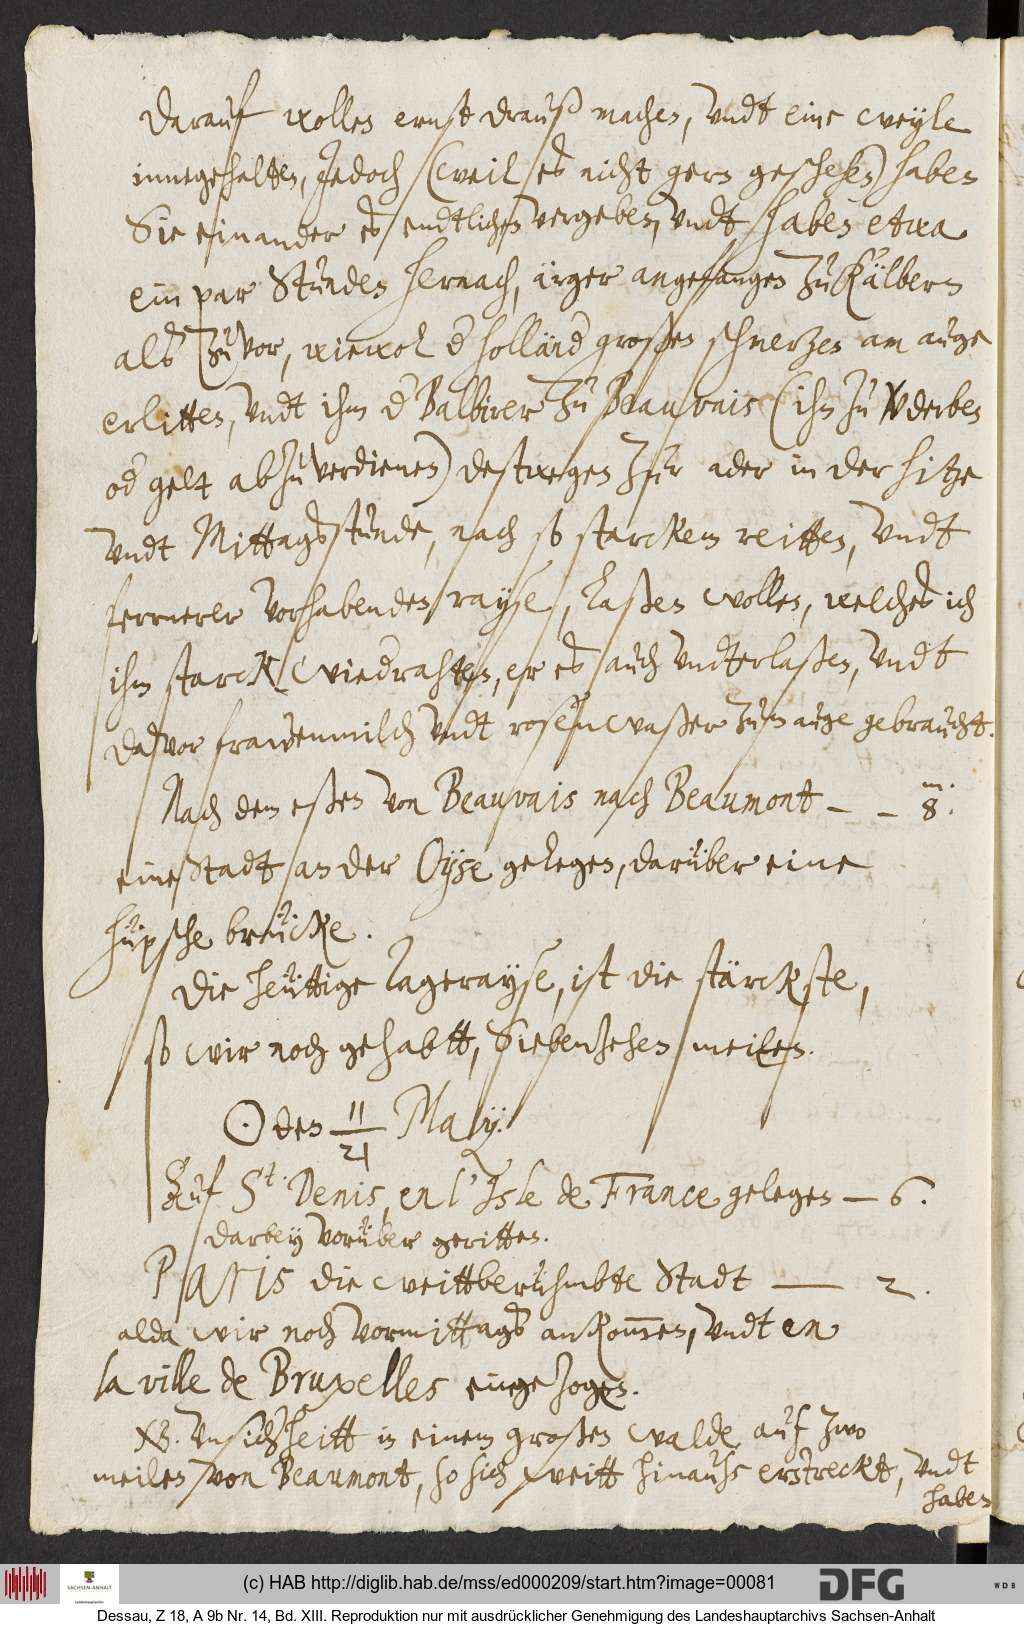 darauf wollen ernst drauß machen, undt eine weyle
innegehalten, Jedoch (weil es nicht gern geschehen) haben
Sie einander es endtlichen vergeben, undt haben etwa
ein par Stunden hernach, ärger angefangen zu kälbern
als (zu)vor, wiewol d' holländ' großen schmerzen am auge
erlitten, undt ihm d' Balbirer zu Beauvais (ihn zu verderben
od' gelt abzuverdienen) destwegen zur ader in der hitze
undt Mittagsstunde, nach so starckem reitten, undt
fernerer vorhabenden rayse, laßen wollen, welches ich
ihm starck wiedrahten, er es auch undterlaßen, undt
davor frawenmilch undt rosenwaßer zum auge gebraucht.
Nach dem eßen von Beauvais nach Beaumont – – 8 m:
eine Stadt an der Oyse gelegen, darüber eine
hüpsche breücke.
Die heüttige tagerayse, ist die stärckste,
so wir noch gehabtt, Siebenzehen meilen.
☉ den 11/21 May.
Auf St. Denis, en l'Isle de France gelegen — 6.
darbey vorüber geritten.
Paris die weittberühmbte Stadt —— 2.
alda wir noch vormittags ankommen, undt en
la ville de Bruxelles eingezogen.
NB. Unsicherheitt in einem großen walde, auf zwo
meilen von Beaumont, so sich weitt hinauß erstreckt, undt
haben
(c) HAB http://diglib.hab.de/mss/ed000209/start.htm?image=00081
SACHSEN-ANHALT
Landeshauptarchiv
DFG
WDB
Dessau, Z 18, A 9b Nr. 14, Bd. XIII. Reproduktion nur mit ausdrücklicher Genehmigung des Landeshauptarchivs Sachsen-Anhalt